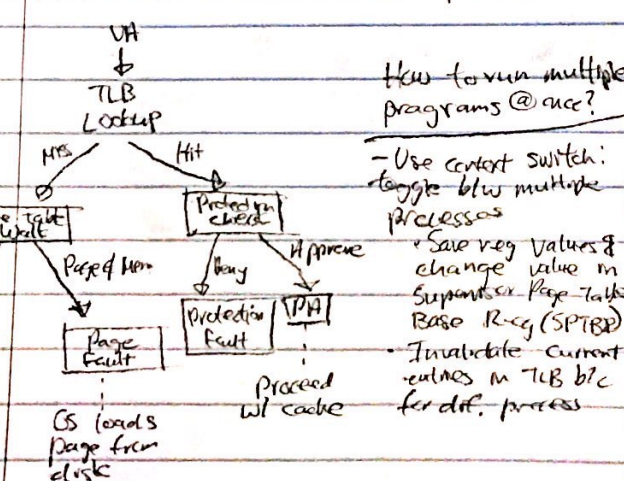 VA
TLB
Lookup
Miss
Hit
Table
Walk
Protection
check
Page ∉ Mem
Deny
Approve
Page
Fault
Protection
Fault
PA
OS loads
page from
disk
Proceed
w/ cache
How to run multiple
programs @ once?
- Use context switch:
toggle b/w multiple
processes
• Save reg values &
change value in
Supervisor Page-Table
Base Reg (SPTBR)
• Invalidate current
entries in TLB b/c
for dif. process